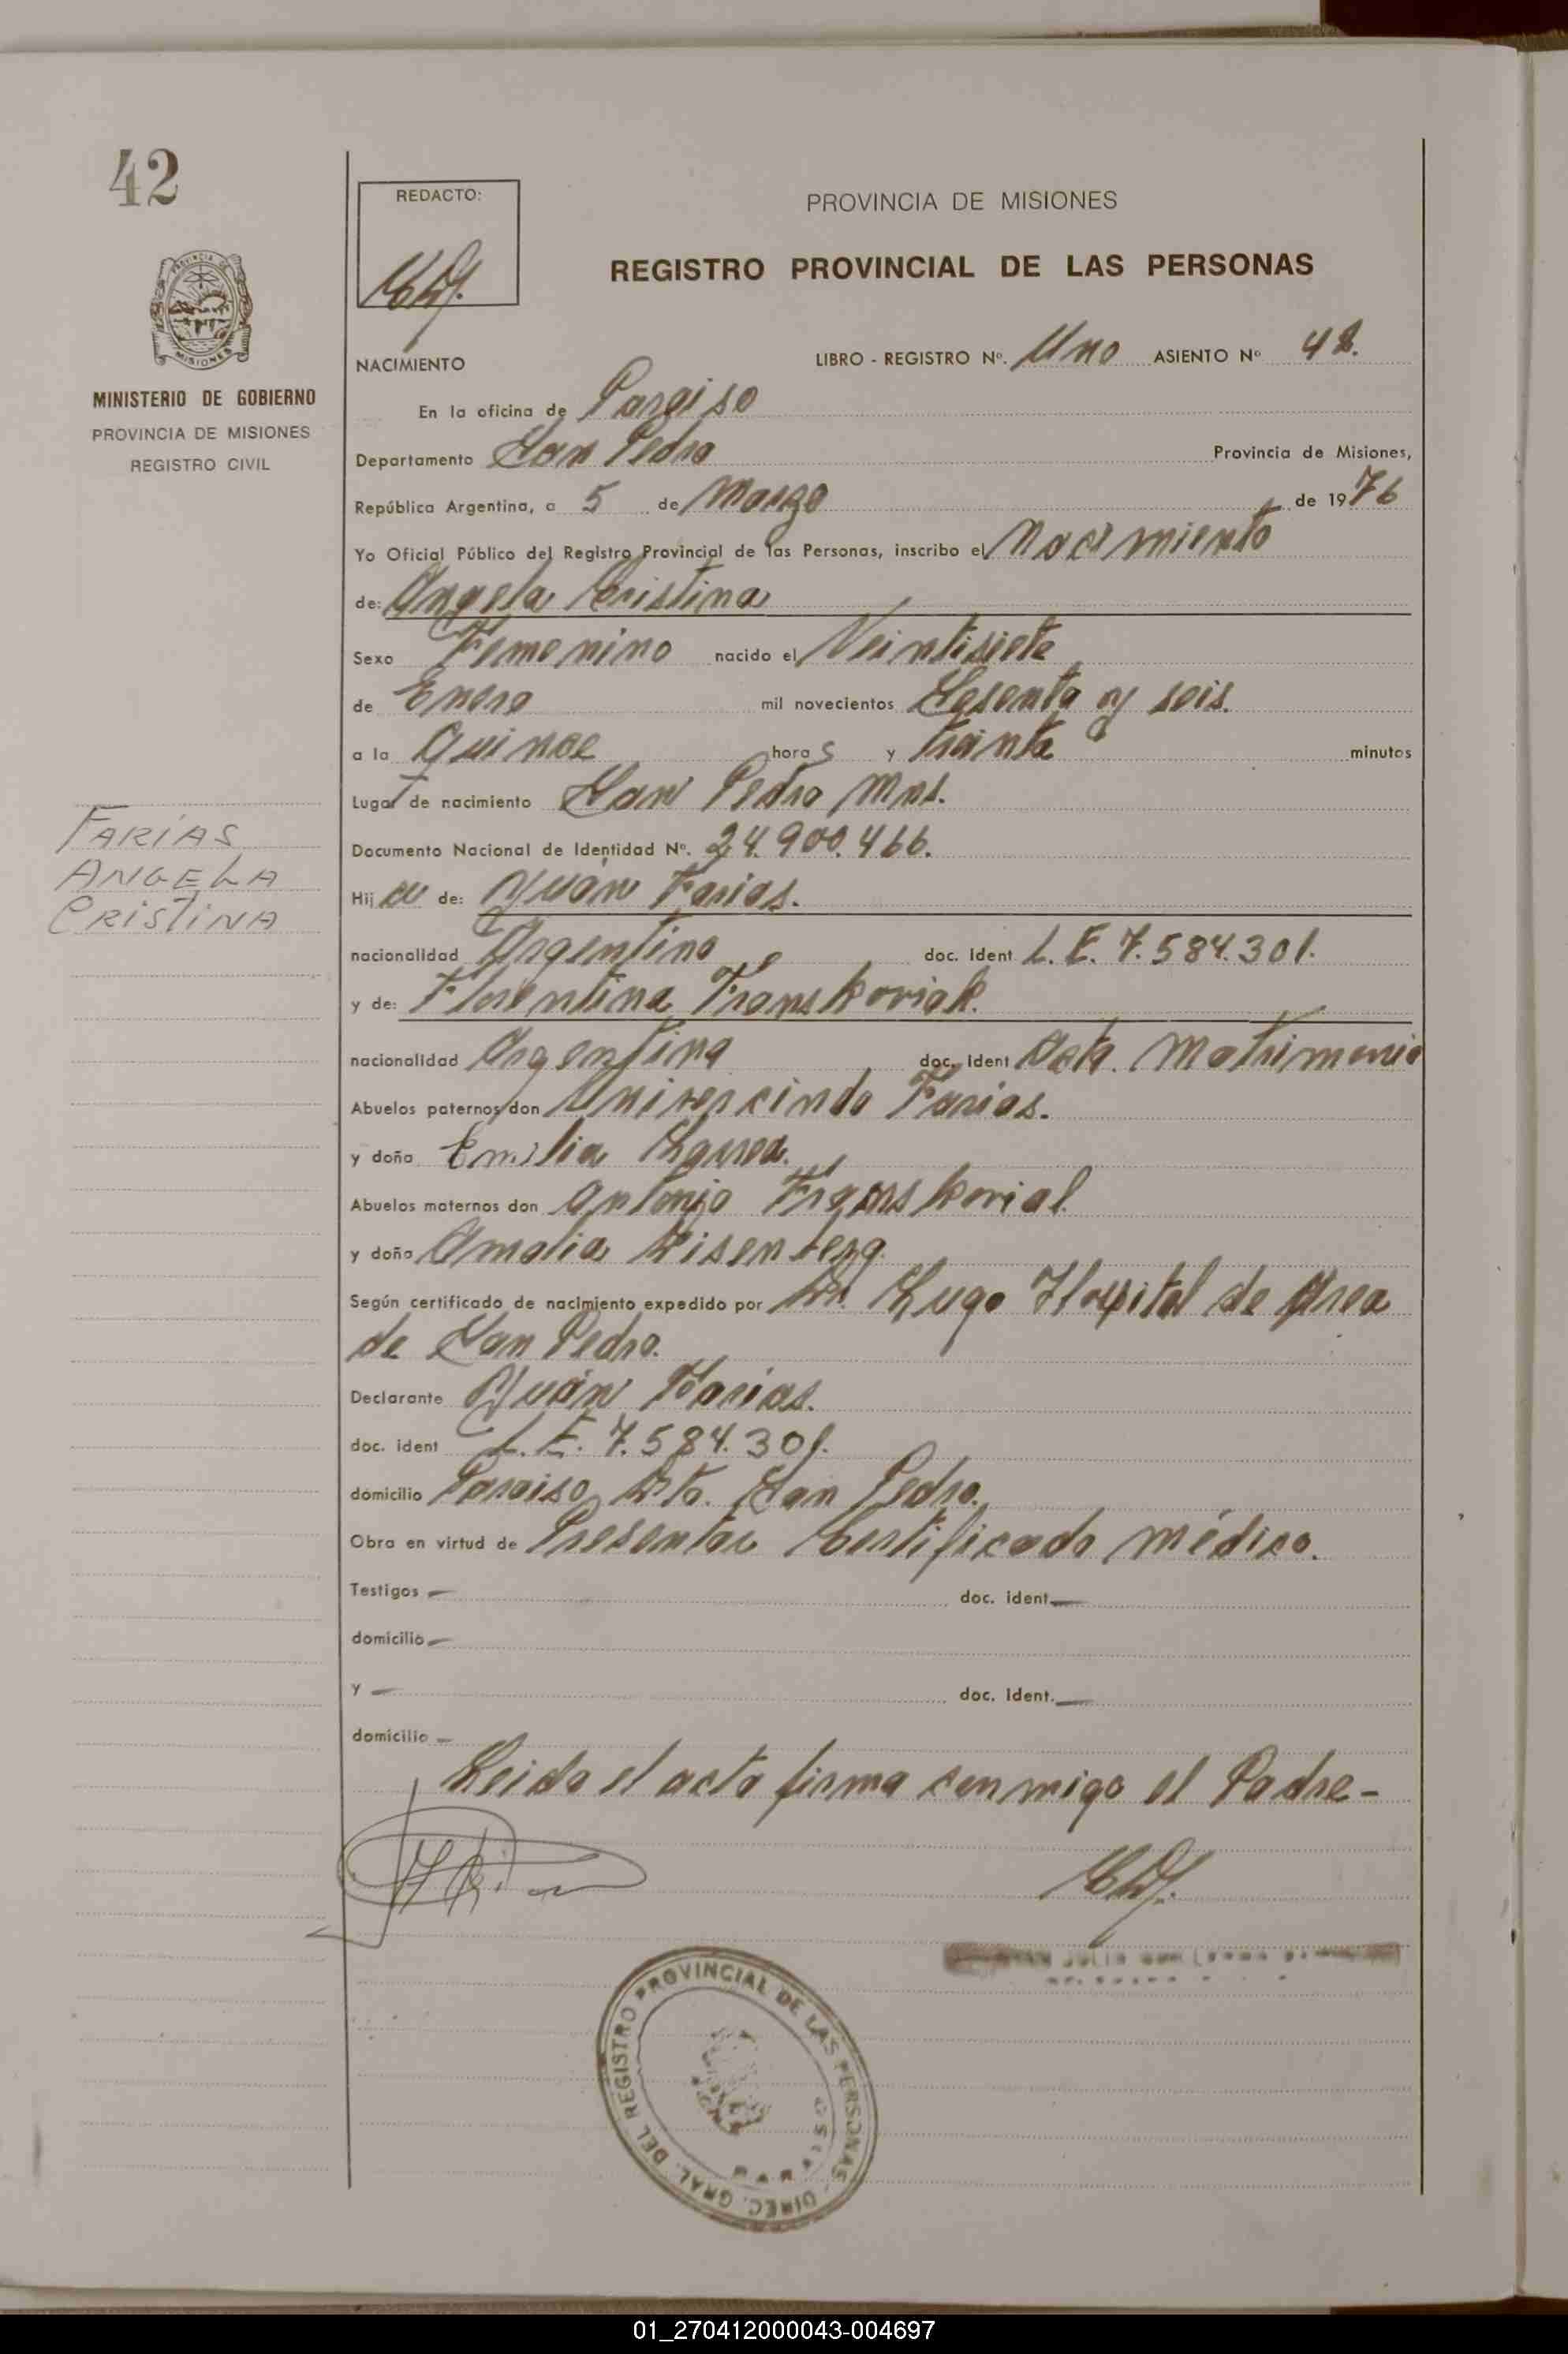 42
REDACTO:
PROVINCIA DE MISIONES
REGISTRO PROVINCIAL DE LAS PERSONAS
PROVINCIA DE
MISIONES
MINISTERIO DE GOBIERNO
PROVINCIA DE MISIONES
REGISTRO CIVIL
NACIMIENTO
LIBRO - REGISTRO Nº. Uno ASIENTO Nº 42.
En la oficina de Paraiso
Departamento San Pedro Provincia de Misiones,
República Argentina, a 5 de Marzo de 1976
Yo Oficial Público del Registro Provincial de las Personas, inscribo el Nacimiento
de: Angela Cristina
Sexo Femenino nacido el Veintisiete
de Enero mil novecientos Sesenta y seis.
a la Quince horas y treinta minutos
Lugar de nacimiento San Pedro Mns.
Documento Nacional de Identidad Nº. 24.900.466.
Hija de: Juán Farias.
nacionalidad Argentino doc. Ident L.E. 7.584.301.
y de: Florentina Franskoviak.
nacionalidad Argentina doc. Ident Acta. Matrimonio
Abuelos paternos don Univercindo Farias.
y doña Emilia
Abuelos maternos don Antonio Franskovial.
y doña Amalia
Según certificado de nacimiento expedido por Dr. Lugo Hospital de Area
de San Pedro.
Declarante Juán Farias.
doc. ident L.E. 7.584.301.
domicilio Paraiso Dto. San Pedro.
Obra en virtud de Presentar Certificado médico.
Testigos — doc. ident. —
domicilio —
y — doc. ident. —
domicilio —
Leida el acta firma conmigo el Padre -
FARÍAS
ANGELA
CRISTINA
DIREC. GRAL. DEL REGISTRO PROVINCIAL DE LAS PERSONAS
01_270412000043-004697